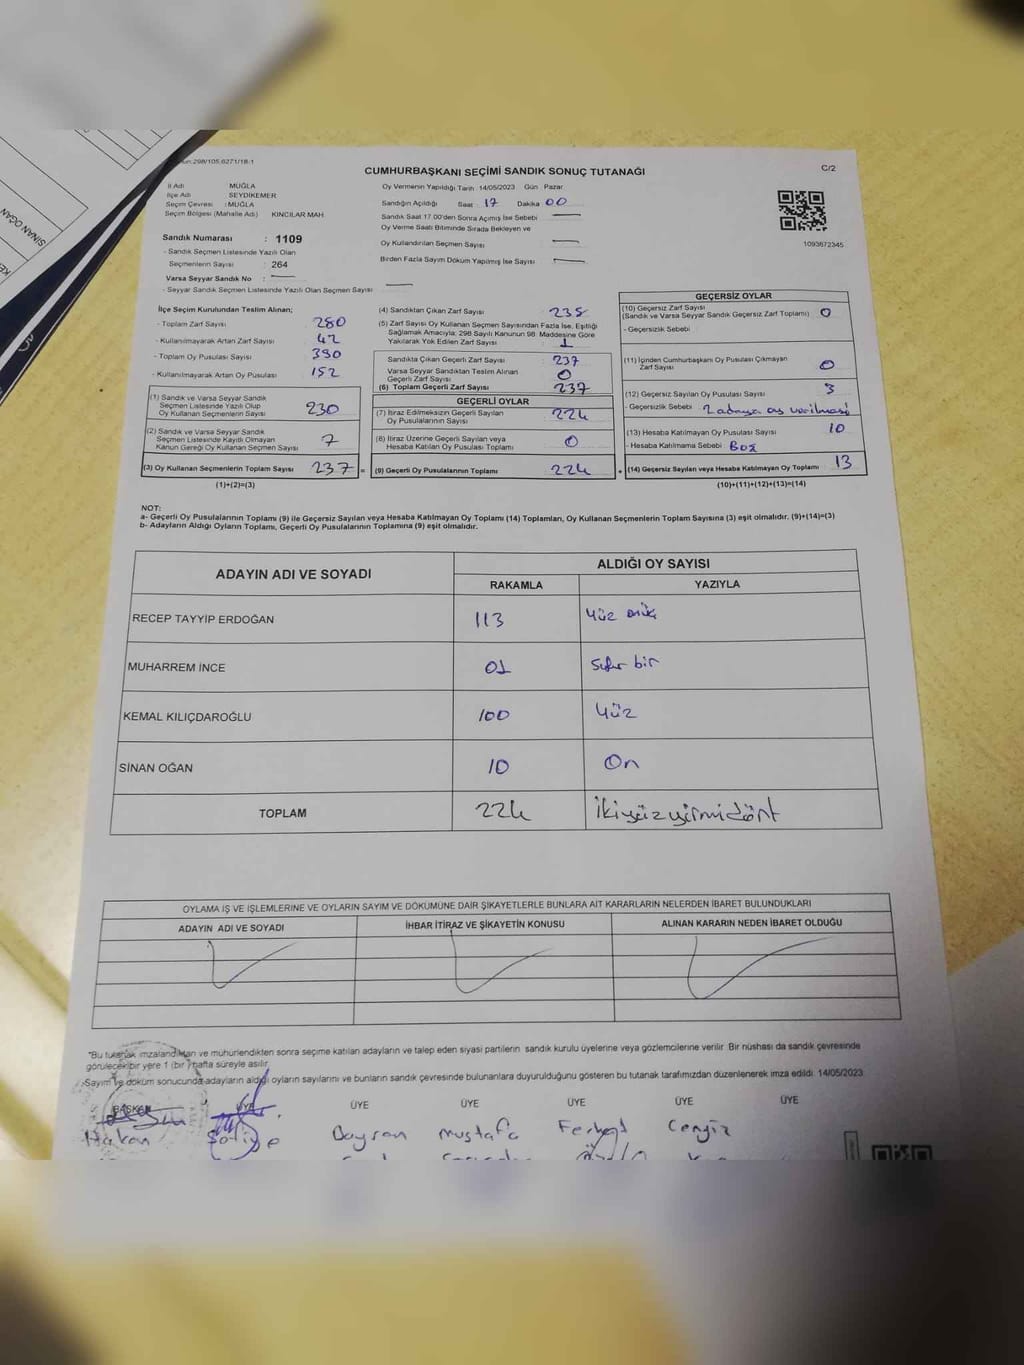 CUMHURBAŞKANI SEÇİMİ SANDIK SONUÇ TUTANAĞI
C/2
İl Adı MUĞLA
İlçe Adı SEYDİKEMER
Seçim Çevresi : MUĞLA
Seçim Bölgesi (Mahalle Adı) KINCILAR MAH
Sandık Numarası : 1109
- Sandık Seçmen Listesinde Yazılı Olan
Seçmenlerin Sayısı : 264
Varsa Seyyar Sandık No :
- Seyyar Sandık Seçmen Listesinde Yazılı Olan Seçmen Sayısı
Oy Vermenin Yapıldığı Tarih 14/05/2023 Gün Pazar
Sandığın Açıldığı Saat : 17 Dakika 00
Sandık Saat 17.00'den Sonra Açılmış İse Sebebi
Oy Verme Saati Bitiminde Sırada Bekleyen ve
Oy Kullandırılan Seçmen Sayısı
Birden Fazla Sayım Döküm Yapılmış İse Sayısı
1093672345
İlçe Seçim Kurulundan Teslim Alınan;
- Toplam Zarf Sayısı 280
- Kullanılmayarak Artan Zarf Sayısı 42
- Toplam Oy Pusulası Sayısı 390
- Kullanılmayarak Artan Oy Pusulası 152
(1) Sandık ve Varsa Seyyar Sandık
Seçmen Listesinde Yazılı Olup
Oy Kullanan Seçmenlerin Sayısı 230
(2) Sandık ve Varsa Seyyar Sandık
Seçmen Listesinde Kayıtlı Olmayan
Kanun Gereği Oy Kullanan Seçmen Sayısı 7
(3) Oy Kullanan Seçmenlerin Toplam Sayısı 237 =
(1)+(2)=(3)
(4) Sandıktan Çıkan Zarf Sayısı 238
(5) Zarf Sayısı Oy Kullanan Seçmen Sayısından Fazla İse, Eşitliği
Sağlamak Amacıyla; 298 Sayılı Kanunun 98. Maddesine Göre
Yakılarak Yok Edilen Zarf Sayısı 1
Sandıkta Çıkan Geçerli Zarf Sayısı 237
Varsa Seyyar Sandıktan Teslim Alınan
Geçerli Zarf Sayısı 0
(6) Toplam Geçerli Zarf Sayısı 237
GEÇERLİ OYLAR
(7) İtiraz Edilmeksizin Geçerli Sayılan
Oy Pusulalarının Sayısı 224
(8) İtiraz Üzerine Geçerli Sayılan veya
Hesaba Katılan Oy Pusulası Toplamı 0
(9) Geçerli Oy Pusulalarının Toplamı 224 +
GEÇERSİZ OYLAR
(10) Geçersiz Zarf Sayısı
(Sandık ve Varsa Seyyar Sandık Geçersiz Zarf Toplamı) 0
- Geçersizlik Sebebi
(11) İçinden Cumhurbaşkanı Oy Pusulası Çıkmayan
Zarf Sayısı 0
(12) Geçersiz Sayılan Oy Pusulası Sayısı 3
- Geçersizlik Sebebi : 2 adaya oy verilmesi
(13) Hesaba Katılmayan Oy Pusulası Sayısı 10
- Hesaba Katılmama Sebebi : Boş
(14) Geçersiz Sayılan veya Hesaba Katılmayan Oy Toplamı 13
(10)+(11)+(12)+(13)=(14)
NOT:
a- Geçerli Oy Pusulalarının Toplamı (9) ile Geçersiz Sayılan veya Hesaba Katılmayan Oy Toplamı (14) Toplamları, Oy Kullanan Seçmenlerin Toplam Sayısına (3) eşit olmalıdır. (9)+(14)=(3)
b- Adayların Aldığı Oyların Toplamı, Geçerli Oy Pusulalarının Toplamına (9) eşit olmalıdır.
ADAYIN ADI VE SOYADI ALDIĞI OY SAYISI
RAKAMLA YAZIYLA
RECEP TAYYİP ERDOĞAN 113 Yüz onüç
MUHARREM İNCE 01 Sıfır bir
KEMAL KILIÇDAROĞLU 100 Yüz
SİNAN OĞAN 10 On
TOPLAM 224 İkiyüzyirmidört
OYLAMA İŞ VE İŞLEMLERİNE VE OYLARIN SAYIM VE DÖKÜMÜNE DAİR ŞİKAYETLERLE BUNLARA AİT KARARLARIN NELERDEN İBARET BULUNDUKLARI
ADAYIN ADI VE SOYADI İHBAR İTİRAZ VE ŞİKAYETİN KONUSU ALINAN KARARIN NEDEN İBARET OLDUĞU
*Bu tutanak imzalandıktan ve mühürlendikten sonra seçime katılan adayların ve talep eden siyasi partilerin sandık kurulu üyelerine veya gözlemcilerine verilir. Bir nüshası da sandık çevresinde
görülecek bir yere 1 (bir) hafta süreyle asılır.
Sayım ve döküm sonucunda adayların aldığı oyların sayılarını ve bunların sandık çevresinde bulunanlara duyurulduğunu gösteren bu tutanak tarafımızdan düzenlenerek imza edildi. 14/05/2023
BAŞKAN ÜYE ÜYE ÜYE ÜYE ÜYE ÜYE
Hakan Bayram Mustafa Ferhat Cengiz
SİNAN OĞAN